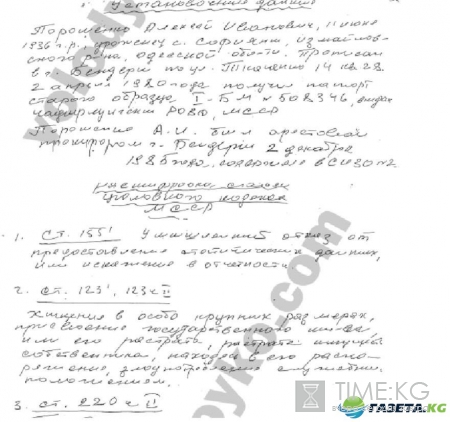 Установочные данные
Порошенко Алексей Иванович, 11 июня
1936 г.р., уроженец с. Сафьяны, Измаиль-
ского р-на, Одесской обл-ти. Прописан
в г. Бендеры по ул. Ткаченко 14 кв. 28.
2 апреля 1980 года получил паспорт
старого образца I-БМ № 508346, выдан
РОВД, МССР
Порошенко А.И. был арестован
прокурором г. Бендеры 2 декабря
1985 года. содержался в СИЗО №2
расшифровка статей
уголовного кодекса
МССР
1. СТ. 155¹ Умышленный отказ от
предоставления статистических данных,
или искажение в отчетности
2. ст. 123¹, 123 ч II
Хищение в особо крупных размерах,
присвоение государственного им-ва,
или его растрата, растрата имущества
собственника, находящ. в его распо-
ряжение, злоупотребление служебным
положением.
3. ст. 220 ч II
TIME.KG
ГАЗЕТА.KG